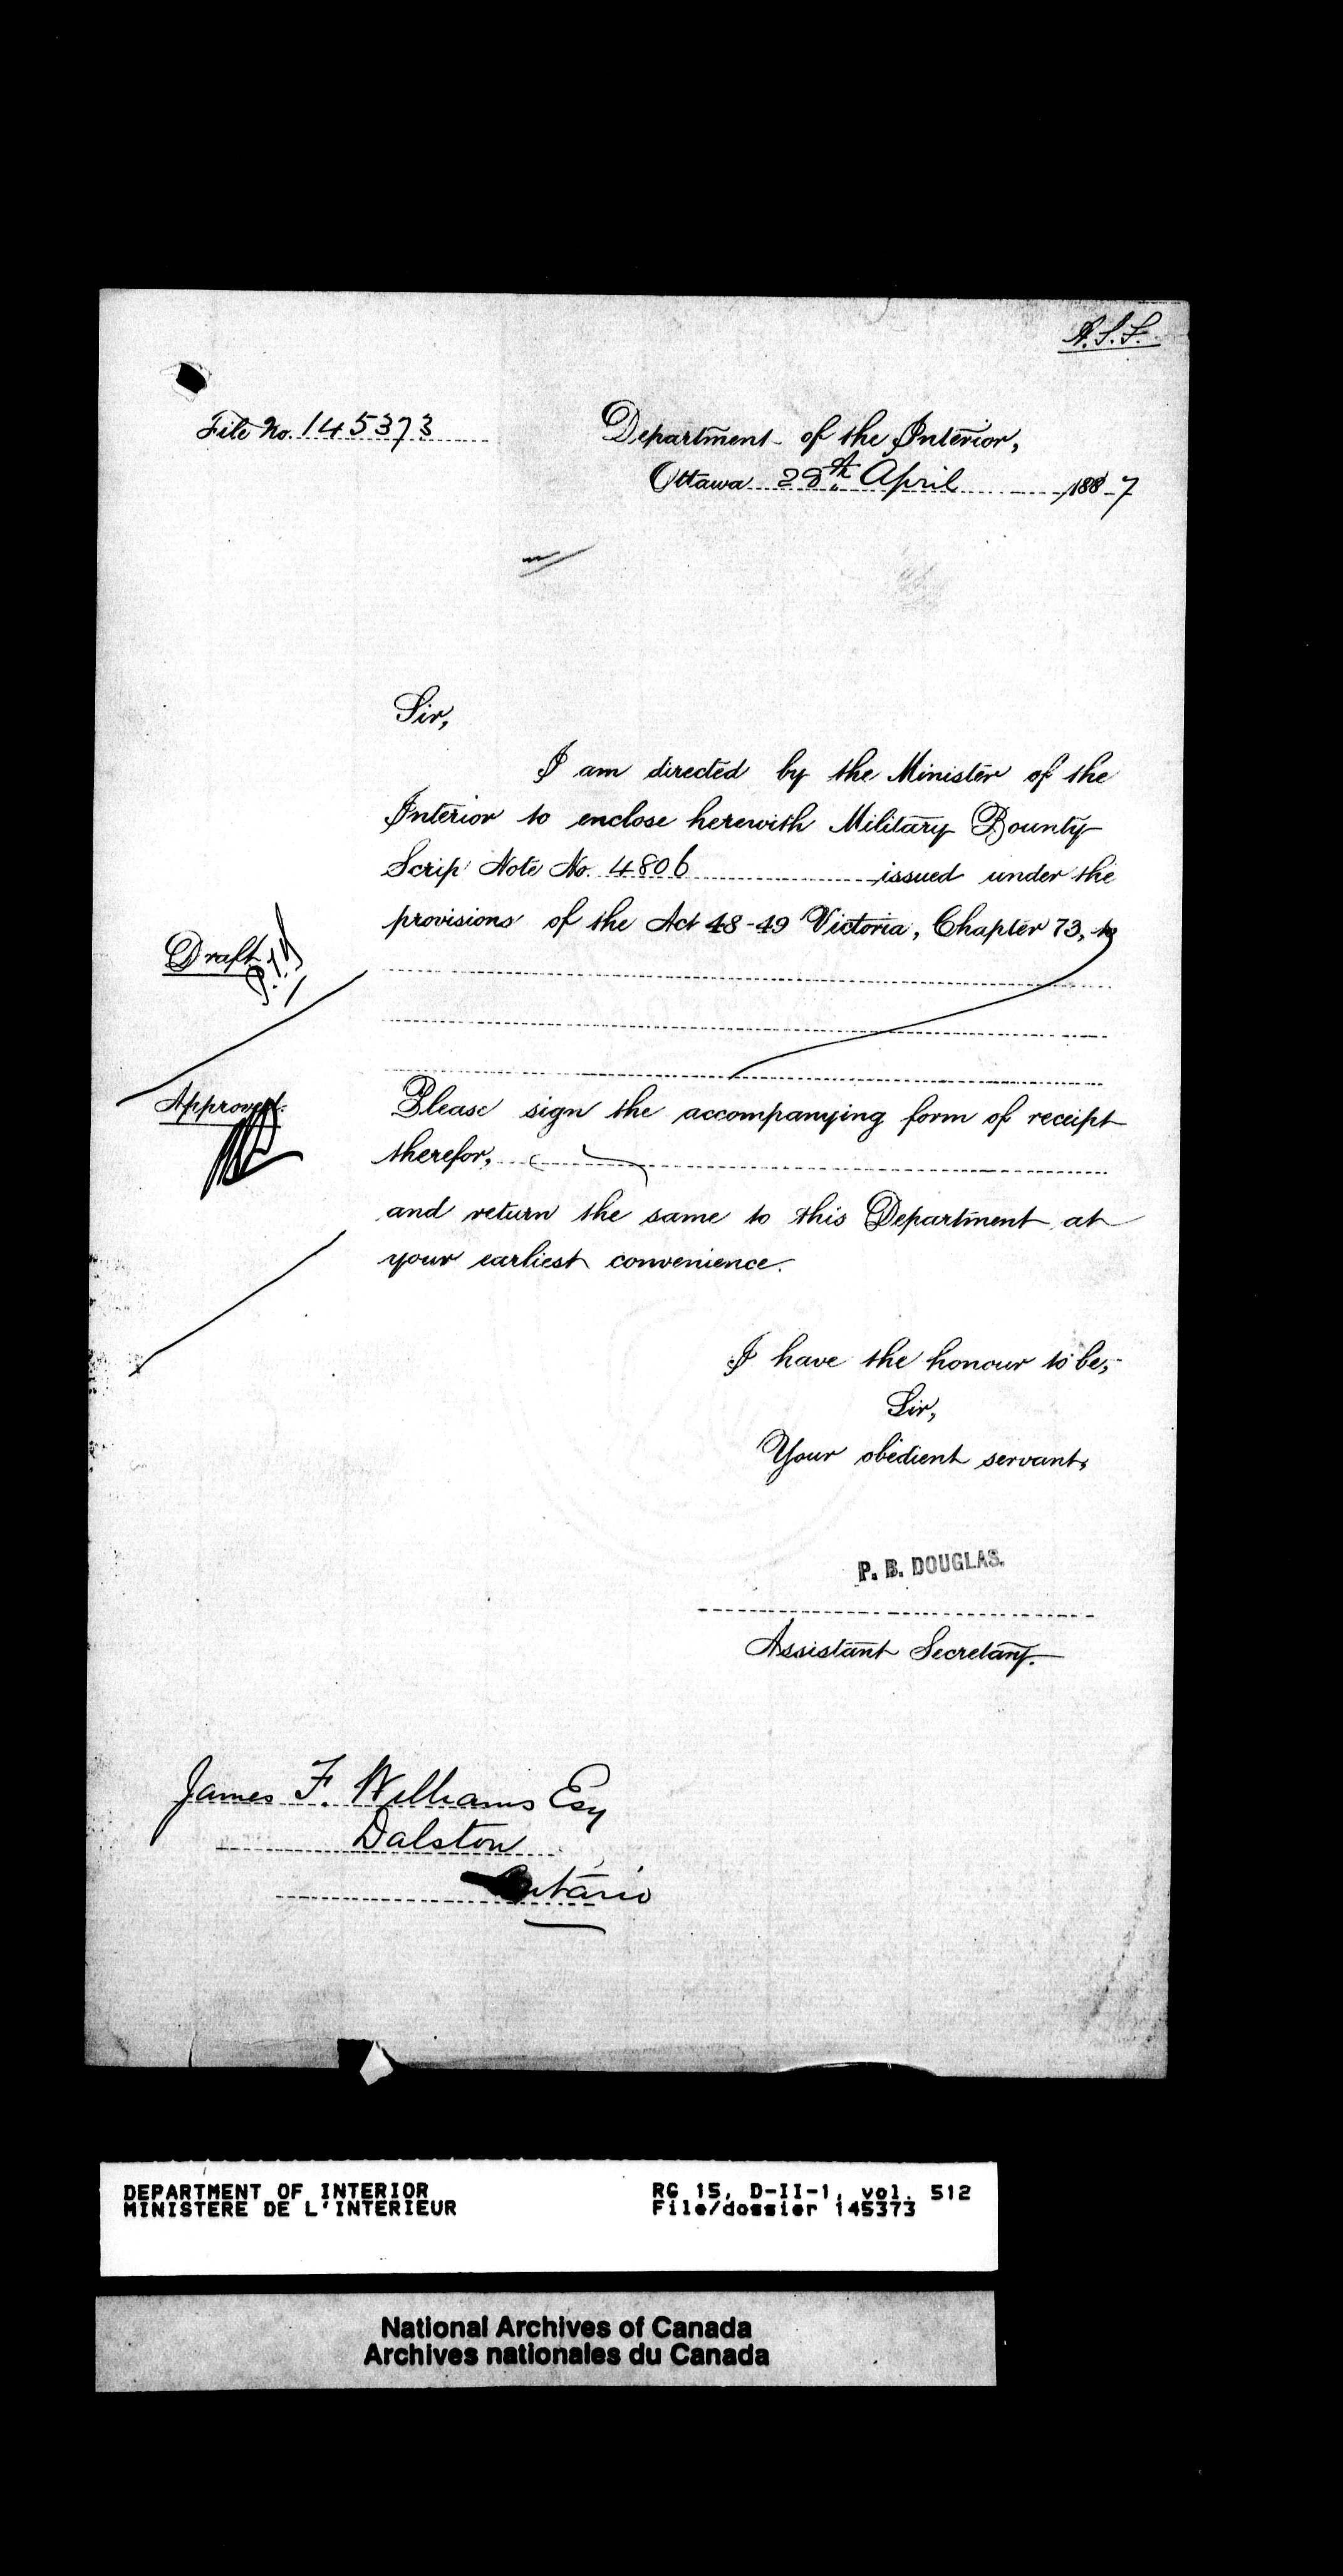 A.S.S.
File No. 145373
Department of the Interior,
Ottawa 28th April 1887
Sir,
I am directed by the Minister of the
Interior to enclose herewith Military Bounty
Scrip Note No. 4806 issued under the
provisions of the Act 48-49 Victoria, Chapter 73, to
Draft.
Approved.
Please sign the accompanying form of receipt
therefor,
and return the same to this Department at
your earliest convenience.
I have the honour to be,
Sir,
Your obedient servant,
P. B. DOUGLAS.
Assistant Secretary.
James F. Williams Esq
Dalston
Ontario
DEPARTMENT OF INTERIOR
MINISTERE DE L'INTERIEUR
RG 15, D-II-1, vol. 512
File/dossier 145373
National Archives of Canada
Archives nationales du Canada